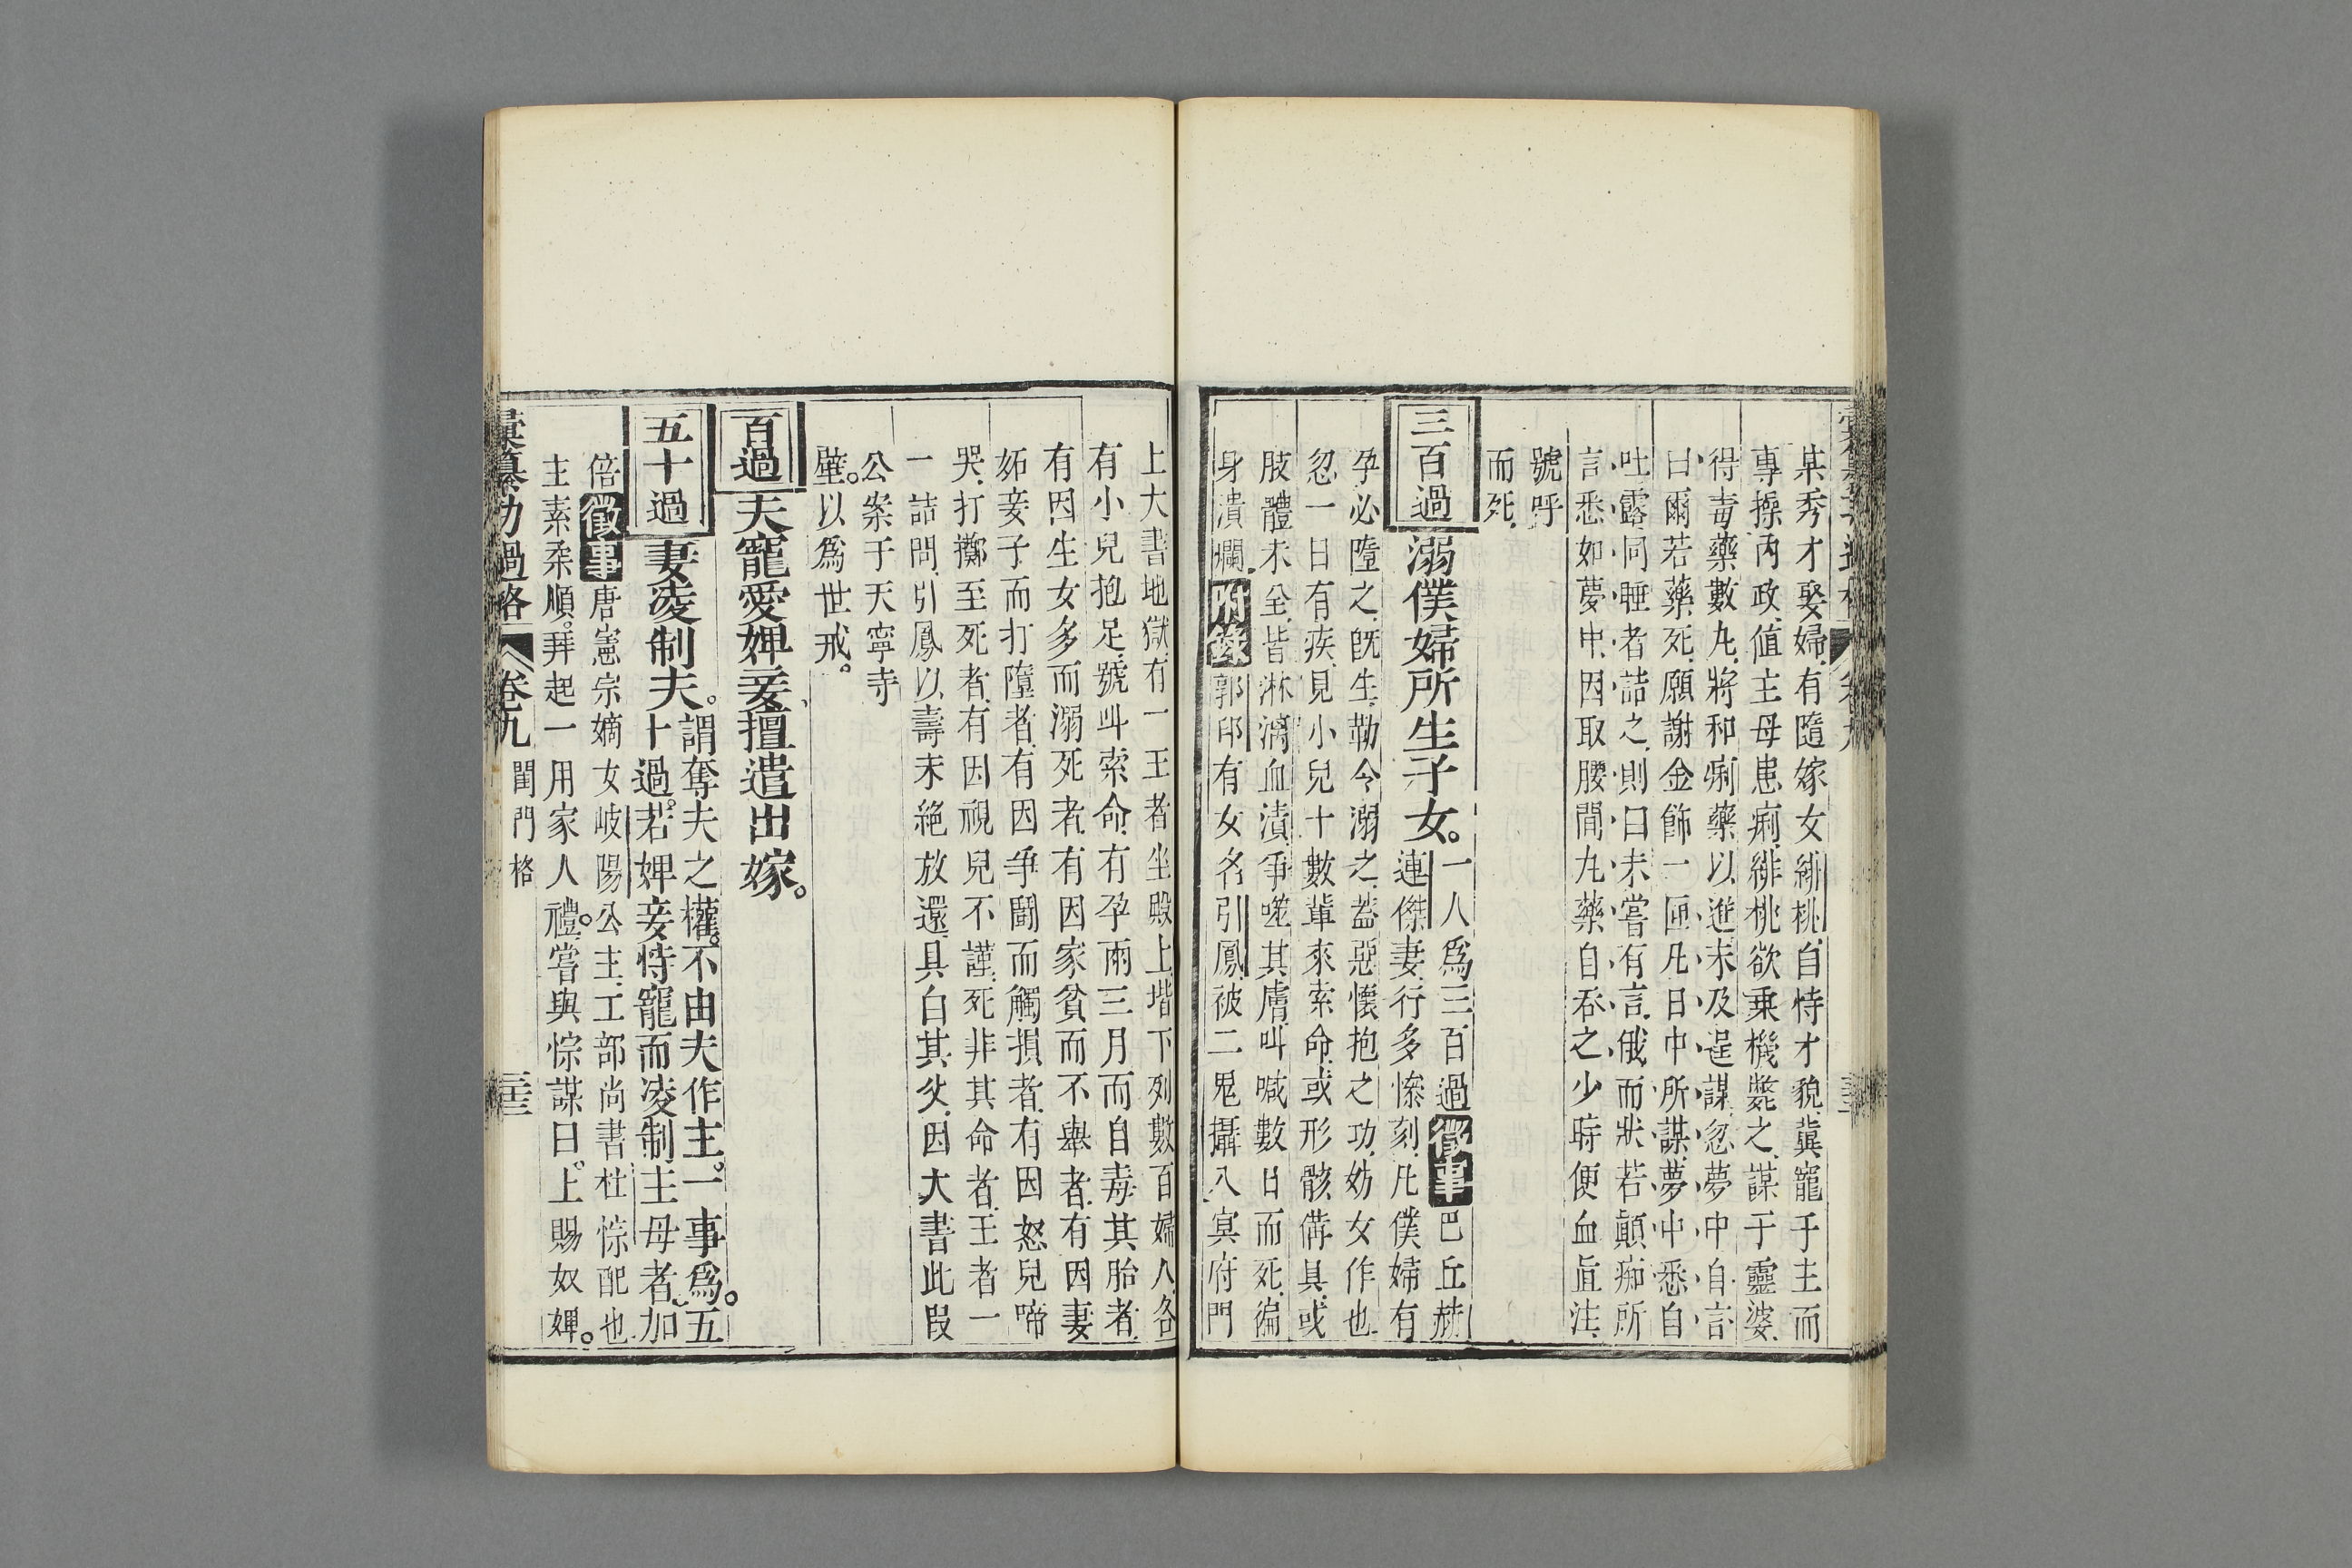 某秀才娶婦有隨嫁女緋桃自恃才貌冀寵于主而
專操內政值主母患痢緋桃欲乗機斃之謀于靈婆
得毒藥數丸將和痢藥以進未及逞謀忽夢中自言
曰爾若藥死願謝金飾一匣凡日中所謀夢中悉自
吐露同睡者詰之則曰未嘗有言俄而狀若顛痴所
言悉如夢中因取腰間丸藥自吞之少時便血直注
號呼
而死
三百過 溺僕婦所生子女。一人爲三百過 徵事 巴丘赫
連傑妻行多慘刻凡僕婦有
孕必墮之旣生勒令溺之葢惡懷抱之功妨女作也
忽一日有疾見小兒十數輩來索命或形骸備具或
肢體未全皆淋漓血漬爭噬其膚叫喊數日而死徧
身潰爛 附錄 郭邱有女名引鳳被二鬼攝入冥府門
上大書地獄有一王者坐殿上堦下列數百婦人各
有小兒抱足號叫索命有孕兩三月而自毒其胎者
有因生女多而溺死者有因家貧而不舉者有因妻
妬妾子而打墮者有因爭鬬而觸損者有因怒兒啼
哭打擲至死者有因視兒不謹死非其命者王者一
一詰問引鳳以壽未絶放還具白其父因大書此叚
公案于天寧寺
壁。以爲世戒。
百過 夫寵愛婢妾擅遣出嫁。
五十過 妻凌制夫。謂奪夫之權。不由夫作主。一事爲。五
十過。若婢妾恃寵而凌制主母者加
倍 徵事 唐憲宗嫡女岐陽公主工部尚書杜悰配也
主素柔順。拜起一用家人禮。嘗與悰謀曰。上賜奴婢。
彙纂功過格 卷九 閨門格 二十三